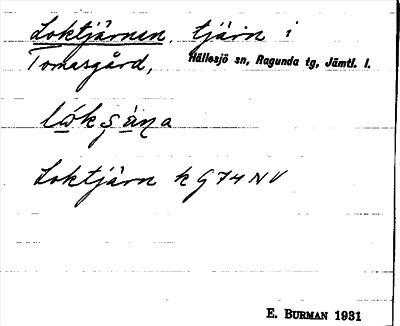 Loktjärnen, tjärn i
Tomasgård, Hällesjö sn, Ragunda tg, Jämtl. l.
Loktjärn k G74NV
E. BURMAN 1931